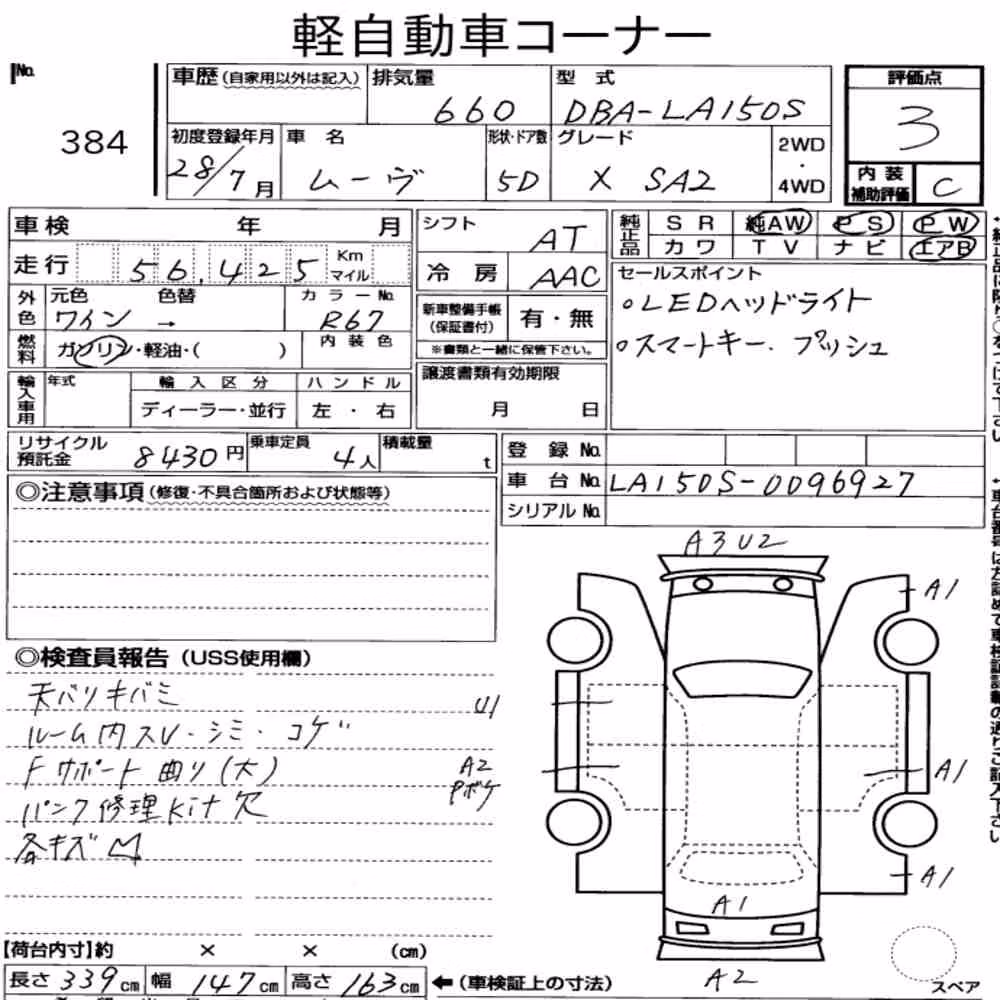 軽自動車コーナー
No.
384
車歴 (自家用以外は記入)
排気量
660
型式
DBA-LA150S
評価点
3
初度登録年月
28/7月
車名
ムーヴ
形状・ドア数
5D
グレード
X SA2
2WD
・
4WD
内装補助評価
C
車検 年 月
走行 56,425 Km マイル
シフト
AT
冷房
AAC
純正品
SR 純AW PS PW
カワ TV ナビ エアB
セールスポイント
○LEDヘッドライト
○スマートキー.プッシュ
外色
元色 色替
ワイン →
カラーNo.
R67
燃料
ガソリン・軽油・( )
内装色
新車整備手帳
(保証書付)
有・無
※書類と一緒に保管下さい。
輸入車用
年式
輸入区分
ディーラー・並行
ハンドル
左・右
譲渡書類有効期限
月 日
リサイクル預託金
8430円
乗車定員
4人
積載量
t
登録No.
車台No. LA150S-0096927
シリアルNo.
◎注意事項 (修復・不具合箇所および状態等)
◎検査員報告 (USS使用欄)
天バリキバミ
ルーム内スレ・シミ・コゲ
Fサポート曲り(大)
パンク修理Kit欠
各キズ凹
A3U2
A1
U1
A2
Pボケ
A1
A1
A1
A2
【荷台内寸】約 × × (cm)
長さ339cm 幅147cm 高さ163cm
←(車検証上の寸法)
スペア